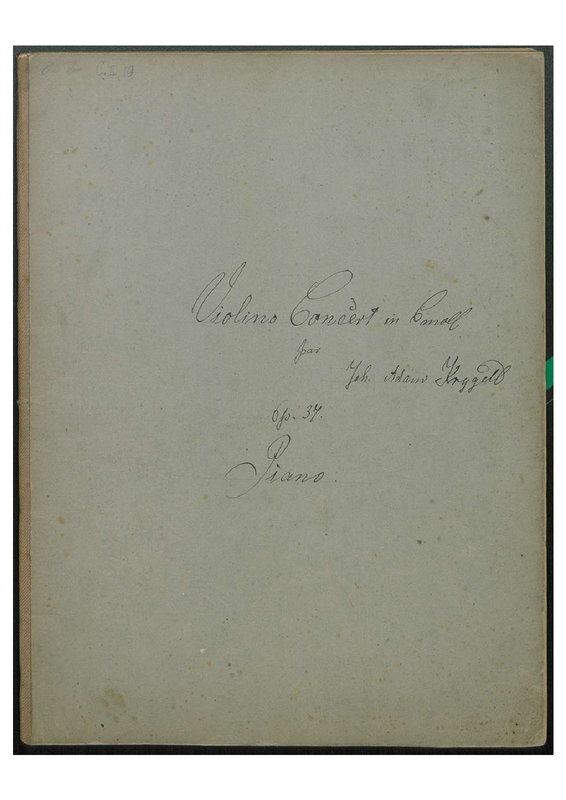 C I, 19
Violino Concert in C moll
par
Joh. Adam Krygell
Op. 37.
Piano.